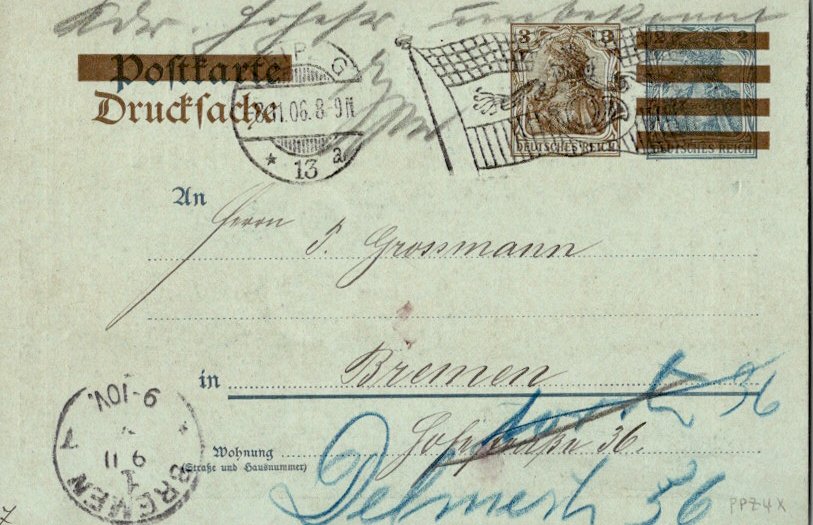 Adr. Hohestr. unbekannt
Postkarte
Drucksache
8.11.06. 8-9 N
* 13 a
3 3
DEUTSCHES REICH
2 2
DEUTSCHES REICH
An
Herrn
J. Grossmann
in Bremen
36
Wohnung
(Straße und Hausnummer)
36.
Delmestr 56
BREMEN
9 11
9-10V.
PPZ4X